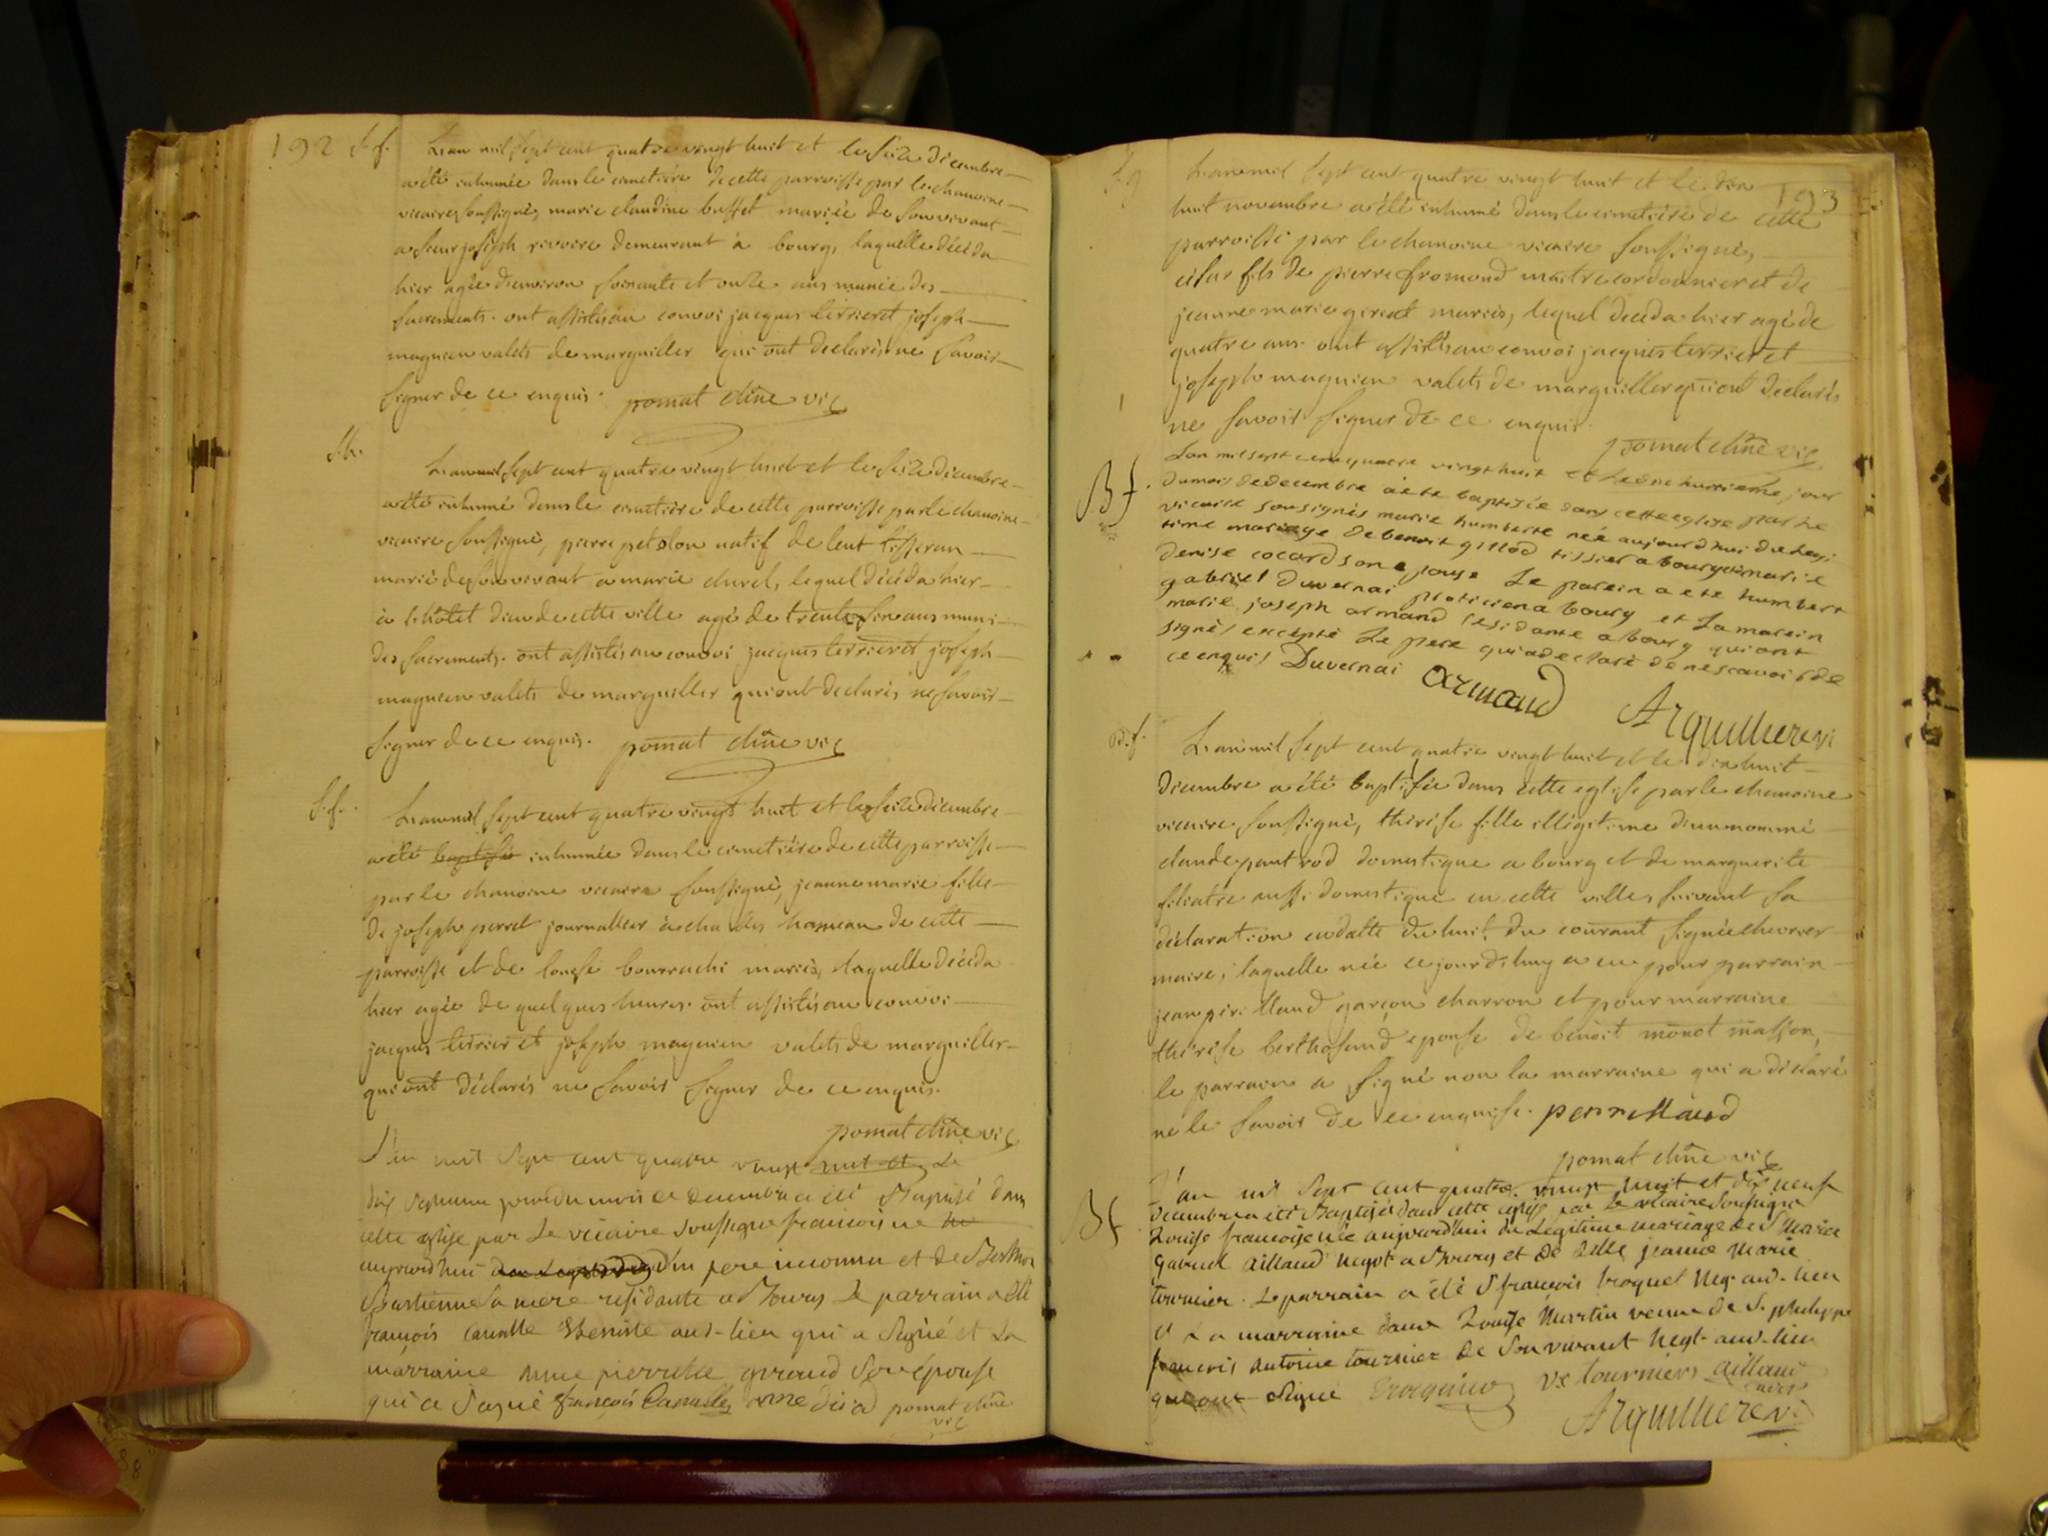 192 S. f.
L'an mil sept cent quatre vingt huit et le seize décembre
a été inhumée dans le cimetière de cette parroisse par le chanoine
vicaire soussigné, marie claudine buffet mariée de son vivant
a sieur joseph rivoire demeurant à bourg, laquelle décéda
hier agée d'environ soixante et onze ans munie des
sacrements. ont assistés au convoi jacques terrier et joseph
magnien valets de marguiller qui ont declarés ne savoir
signer de ce enquis. pomat chne vic
S. h.
L'an mil sept cent quatre vingt huit et le seize décembre
a été inhumé dans le cimetière de cette parroisse par le chanoine
vicaire soussigné, pierre petolon natif de lent tisseran
marié de son vivant a marie churel, lequel décéda hier
à l'hôtel dieu de cette ville agé de trente six ans muni
des sacrements. ont assistés au convoi jacques terrier et joseph
magnien valets de marguiller qui ont declarés ne savoir
signer de ce enquis. pomat chne vic
S. f.
L'an mil sept cent quatre vingt huit et le seize décembre
a été baptisée inhumée dans le cimetière de cette parroisse
par le chanoine vicaire soussigné, jeanne marie fille
de joseph perret journallier à hameau de cette
parroisse et de louise bourrachi mariés, laquelle décéda
hier agée de quelques heures. ont assistés au convoi
jacques terrier et joseph magnien valets de marguiller
qui ont déclarés ne savoir signer de ce enquis.
pomat chne vic
L'an mil sept cent quatre vingt huit et le
dix septieme jour du mois de decembre a été Baptisé dans
cette eglise par le vicaire soussigné francois né
aujourd'hui d'un pere inconnu et de
Bastienne sa mere residante a Bourg le parrain a été
françois audt. lieu qui a signé et la
marraine anne pierrette giraud son épouse
qui a signé françois pomat chne
vic
193
L'an mil sept cent quatre vingt huit et le dix
huit novembre a été inhumé dans le cimetière de cette
parroisse par le chanoine vicaire soussigné,
césar fils de pierre fromond maitre cordonnier et de
jeanne marie mariés, lequel décéda hier agé de
quatre ans. ont assistés au convoi jacques terrier et
joseph magnien valets de marguiller qui ont declarés
ne savoir signer de ce enquis.
pomat chne vic
B f.
L'an mil sept cent quatre vingt huit et le dix huitieme jour
du mois de decembre à été baptisée dans cette eglise par le
vicaire soussignés marie humberte née aujourd'hui du legi
time mariage de benoit gillod tissier a bourg et marie
denise cocard son epouse le parein a ete humbert
gabriel duvernai praticien a bourg et la marein
marie joseph armand residante a bourg qui ont
signés excepté le pere qui a declaré de ne scavoir de
ce enquis Duvernai armand
Arquilliere vi
B. f.
L'an mil sept cent quatre vingt huit et le dix huit
décembre a été baptisée dans cette eglise par le chanoine
vicaire soussigné, thérèse fille illégitime d'un nommé
claude pautrod domestique a bourg et de marguerite
filiatre aussi domestique en cette ville, suivant sa
déclaration en datte du huit du courant signée
maire; laquelle née ce jourd'huy a eu pour parrain
jean perrillaud garçon charron et pour marraine
thérèse berthofend epouse de benoit monet masson,
le parrain a signé non la marraine qui a déclaré
ne le savoir de ce enquise. perrillaud
pomat chne vic
B f.
L'an mil sept cent quatre vingt huit et dix neuf
decembre a été Baptisée dans cette eglise par le vicaire soussigné
Louise francoise née aujourd'hui du Légitime mariage de Sr marie
Gabriel aillaud negt a Bourg et de delle jeanne marie
tournier. Le parrain a été Sr françois negt audt lieu
et La marraine dame Louise Martin veuve de Sr philippe
francois antoine tournier de son vivant negt audt lieu
qui ont signé ve tournier aillaud
Arquilliere vi